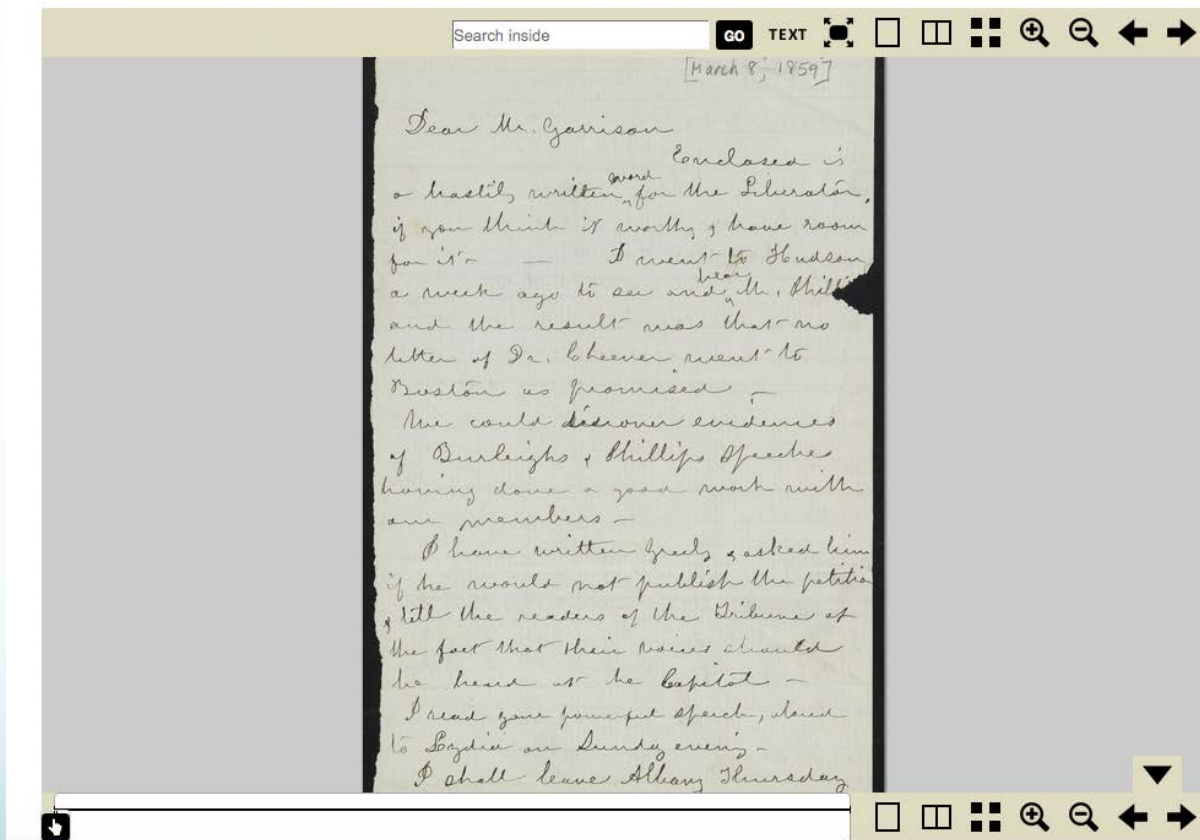 Search inside GO TEXT
[March 8, 1859]
Dear Mr. Garrison
Enclosed is
a hastily written word for the Liberator,
if you think it worthy & have room
for it - — I went to Hudson
a week ago to see and hear Mr. Phill
and the result was that no
letter of Dr. Cheever went to
Boston as promised —
We could discover evidences
of Burleighs & Phillips speeches
having done a good work with
our members —
I have written Greely & asked him
if he would not publish the petition
& tell the readers of the Tribune of
the fact that their voices should
be heard at he Capitol —
I read your powerful speech, aloud
to Lydia on Sunday evening -
I shall leave Albany Thursday